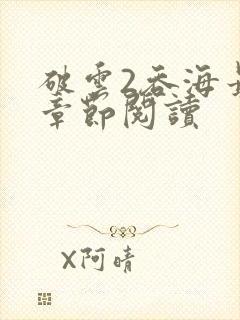 破雲2吞海最
章節閱讀
X阿晴